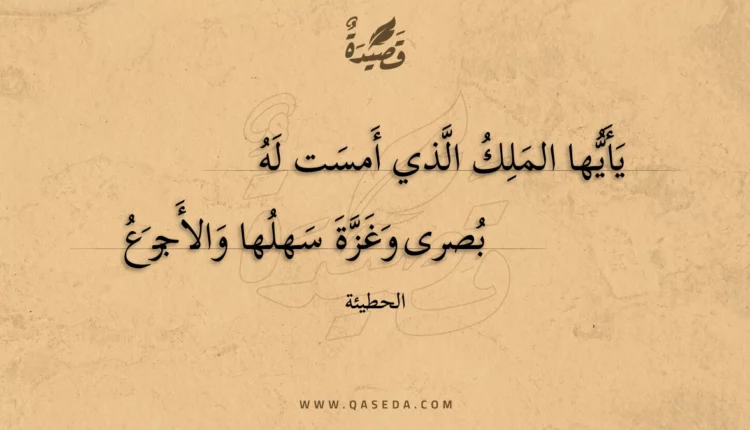 قَصِيْدَةٌ
يَأَيُّها المَلِكُ الَّذي أَمسَت لَهُ
بُصرى وَغَزَّةَ سَهلُها وَالأَجرَعُ
الحطيئة
WWW.QASEDA.COM